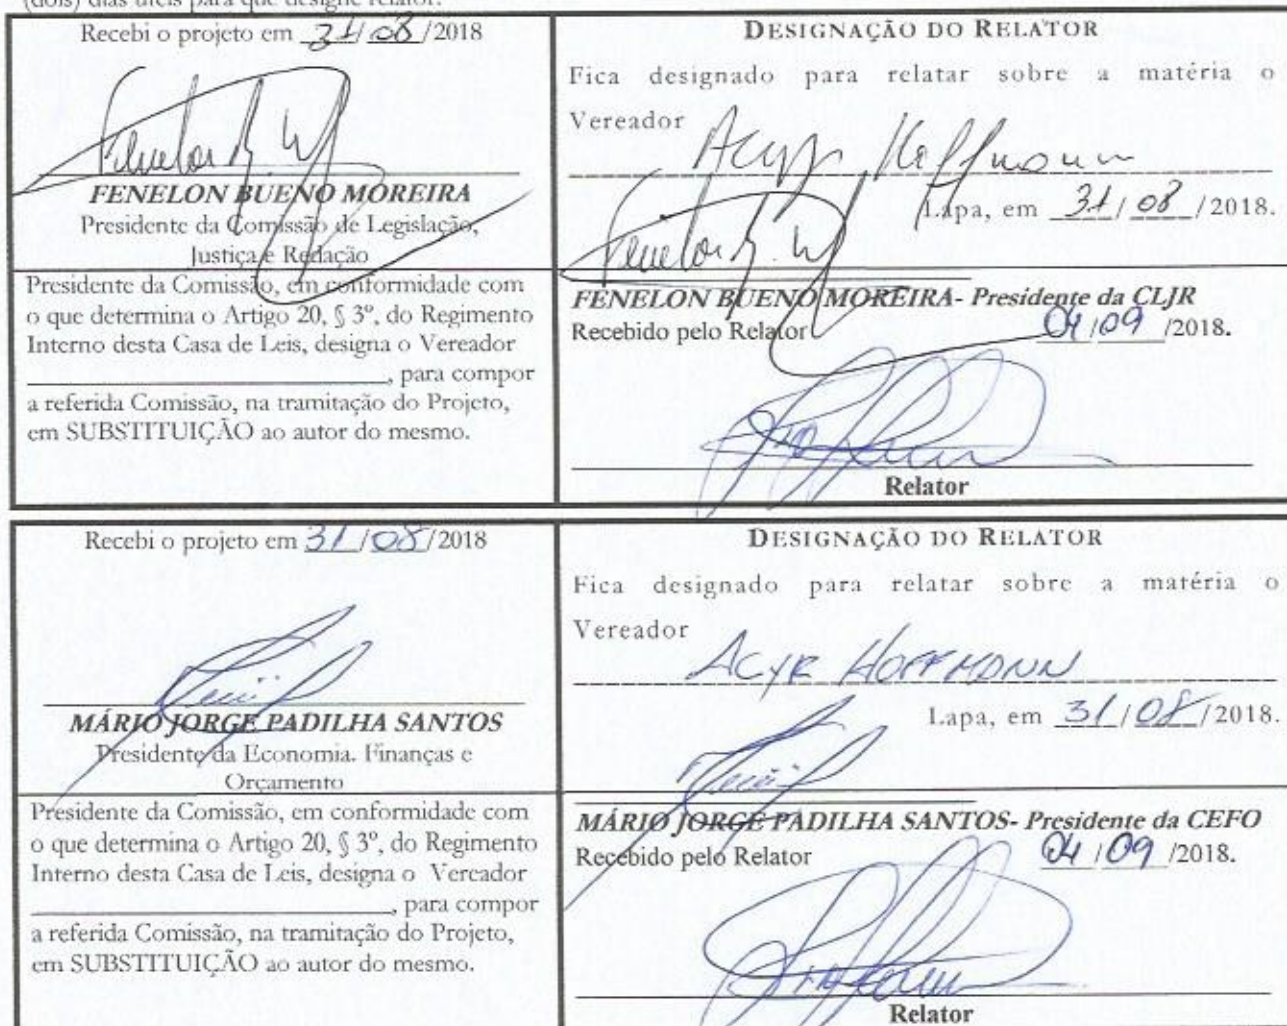 (dois) dias úteis para que designe relator.
Recebi o projeto em 31/08/2018
FENELON BUENO MOREIRA
Presidente da Comissão de Legislação,
Justiça e Redação
Presidente da Comissão, em conformidade com
o que determina o Artigo 20, § 3º, do Regimento
Interno desta Casa de Leis, designa o Vereador
, para compor
a referida Comissão, na tramitação do Projeto,
em SUBSTITUIÇÃO ao autor do mesmo.
DESIGNAÇÃO DO RELATOR
Fica designado para relatar sobre a matéria o
Vereador Acyr Hoffmann
Lapa, em 31/08/2018.
FENELON BUENO MOREIRA- Presidente da CLJR
Recebido pelo Relator 04/09/2018.
Relator
Recebi o projeto em 31/08/2018
MÁRIO JORGE PADILHA SANTOS
Presidente da Economia. Finanças e
Orçamento
Presidente da Comissão, em conformidade com
o que determina o Artigo 20, § 3º, do Regimento
Interno desta Casa de Leis, designa o Vereador
, para compor
a referida Comissão, na tramitação do Projeto,
em SUBSTITUIÇÃO ao autor do mesmo.
DESIGNAÇÃO DO RELATOR
Fica designado para relatar sobre a matéria o
Vereador ACYR HOFFMANN
Lapa, em 31/08/2018.
MÁRIO JORGE PADILHA SANTOS- Presidente da CEFO
Recebido pelo Relator 04/09/2018.
Relator